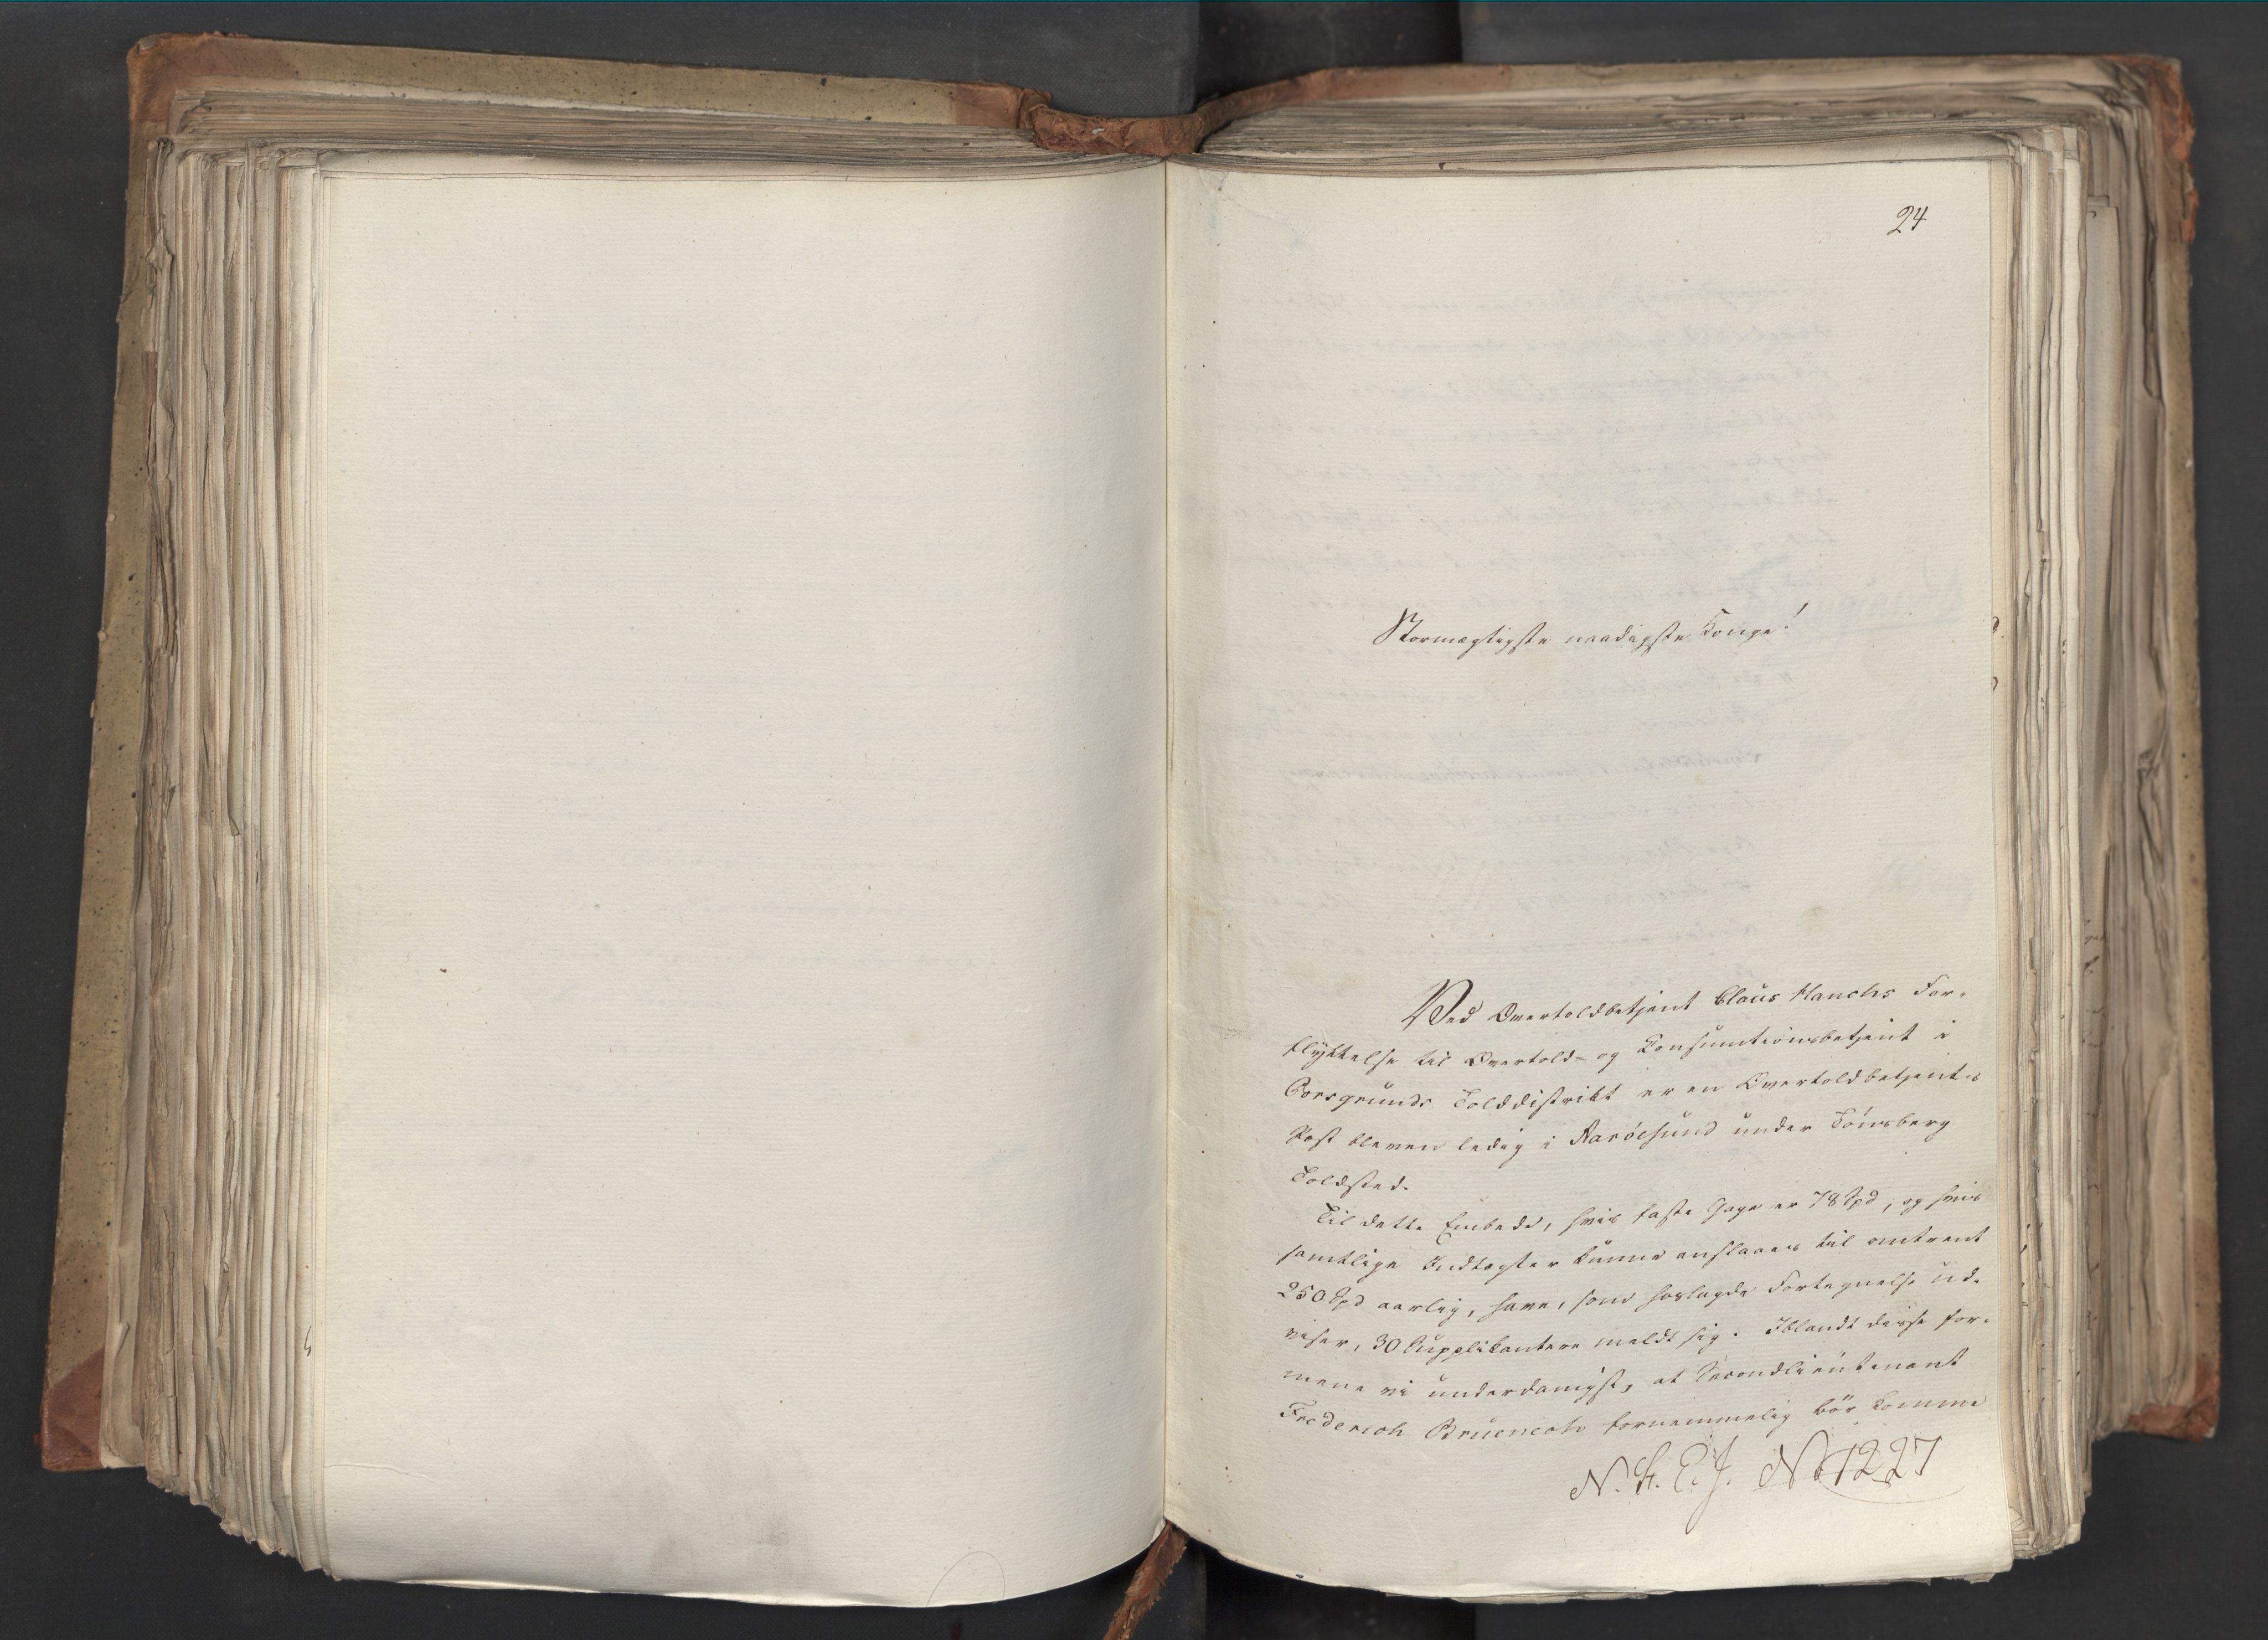 24
Stormægtigste naadigste Konge!
Ved Overtoldbetjent Claus Hanchs For-
flyttelse til Overtold- og Consumtionsbetjent i
Porsgrunds Tolddistrikt er en Overtoldbetjents
Post bleven ledig i Aarøesund under Tønsberg
Toldsted.
Til dette Embede, hvis faste Gage er 78 Spd, og hvis
samtlige Indtægter kunne anslaaes til omtrent
250 Spd aarlig, have, som hoslagde Fortegnelse ud-
viser, 30 Supplikantere meldt sig. Iblandt disse for-
mene vi underdanigst, at Secondlieutenant
Frederich fornemmelig bör komme
N. S. E. J. No 1227